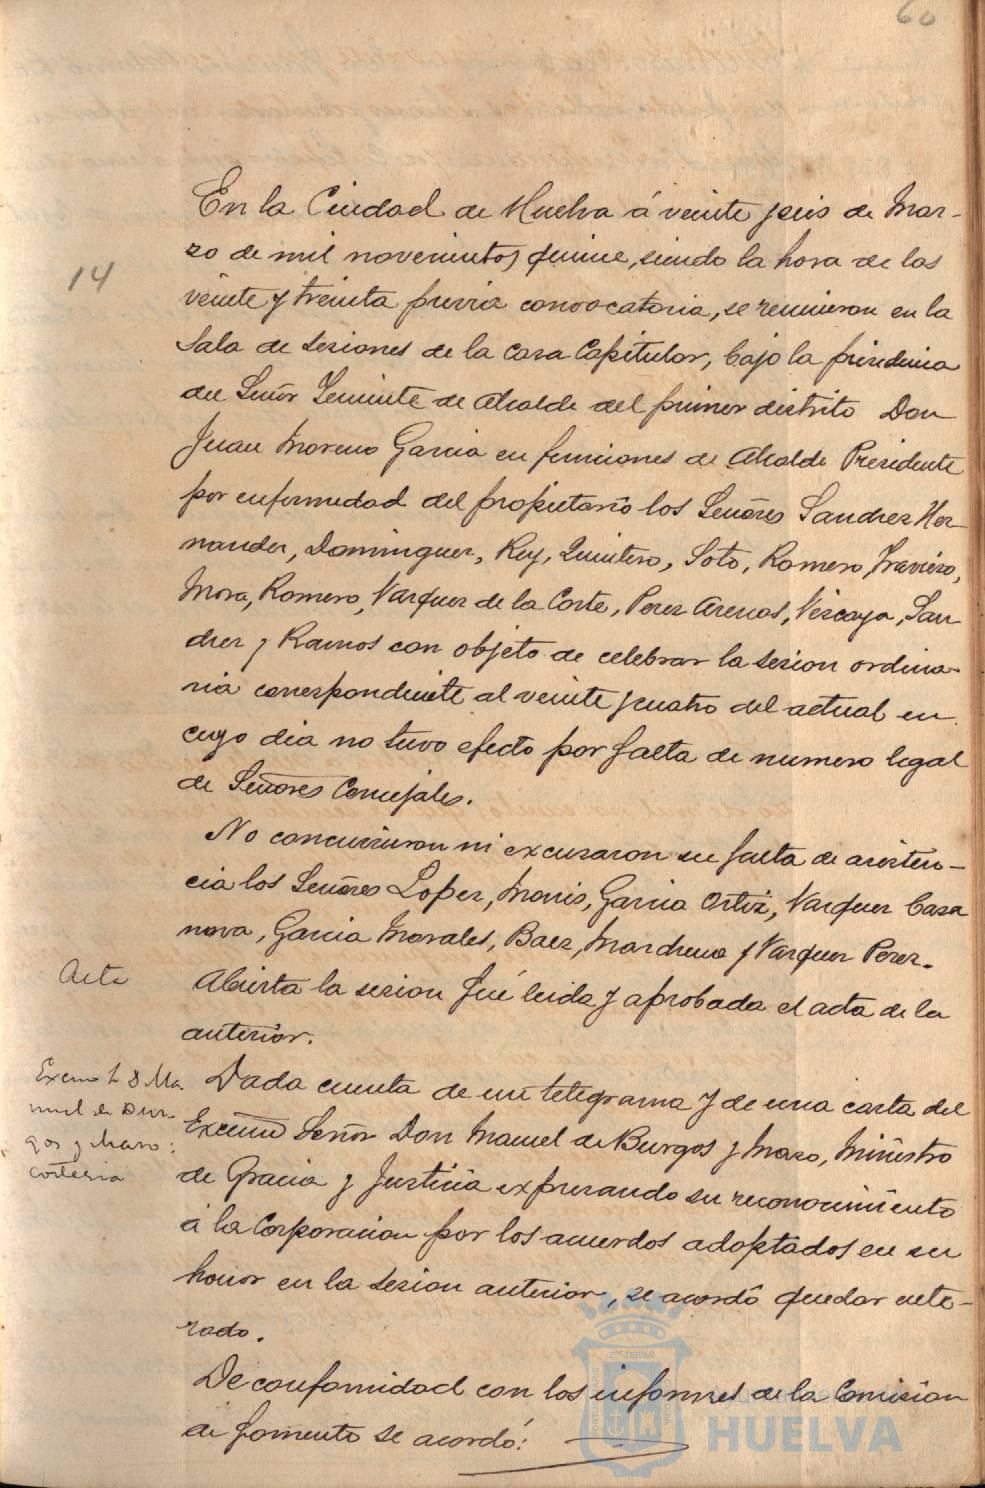 60
En la Ciudad de Huelva á veinte y seis de Mar-
14
zo de mil novecientos quince, siendo la hora de las
veinte y treinta previa convocatoria, se reunieron en la
Sala de Sesiones de la Casa Capitular, bajo la presidencia
del Señor Teniente de Alcalde del primer distrito Don
Juan Moreno Garcia en funciones de Alcalde Presidente
por enfermedad del propietario los Señores Sanchez Her-
nandez, Dominguez, Rey, Quintero, Soto, Romero, Travieso,
Mora, Romero, Vazquez de la Corte, Perez Arenas, Vizcaya, San-
chez y Ramos con objeto de celebrar la sesion ordina-
ria correspondiente al veinte y cuatro del actual en
cuyo dia no tuvo efecto por falta de numero legal
de Señores Concejales.
No concurrieron ni excusaron su falta de asisten-
cia los Señores Lopez, Monis, Garcia Ortiz, Vazquez Casa
nova, Garcia Morales, Baez, Marchena y Vazquez Perez.
Acta
Abierta la sesion fué leida y aprobada el acta de la
anterior.
Excmo Sr D Ma-
nuel de Bur-
gos y Mazo:
cortesia
Dada cuenta de un telegrama y de una carta del
Excmo Señor Don Manuel de Burgos y Mazo, Ministro
de Gracia y Justicia expresando su reconocimiento
á la Corporacion por los acuerdos adoptados en su
honor en la sesion anterior, se acordó quedar ente-
rado.
De conformidad con los informes de la Comision
de fomento se acordó:
HUELVA